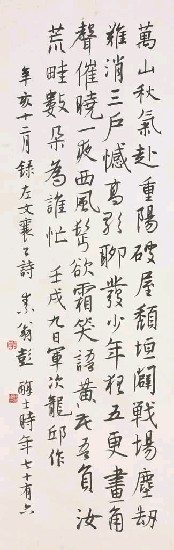 萬山秋氣赴重陽破屋頹垣闢戰場塵劫
難消三戶憾高歌聊發少年狂五更畫角
聲催曉一夜西風鬢欲霜笑語黃花吾負汝
荒畦數朵為誰忙 壬戌九日軍次龍邱作
辛亥十二月錄左文襄公詩 素翁彭醇士時年七十有六